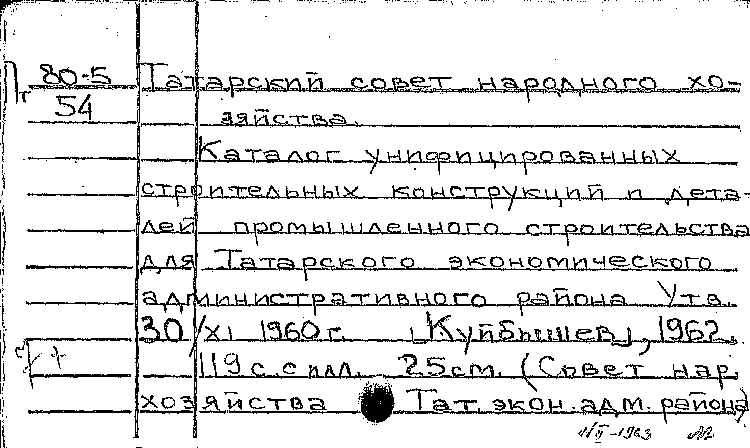 Пг 80-5 Татарский совет народного хо-
54 зяйства.
Каталог унифицированных
строительных конструкций и дета-
лей промышленного строительства
для Татарского экономического
административного района Утв.
30/XI 1960 г. [Куйбышев], 1962.
119 с. с илл. 25 см. (Совет нар.
хозяйства Тат. экон. адм. района)